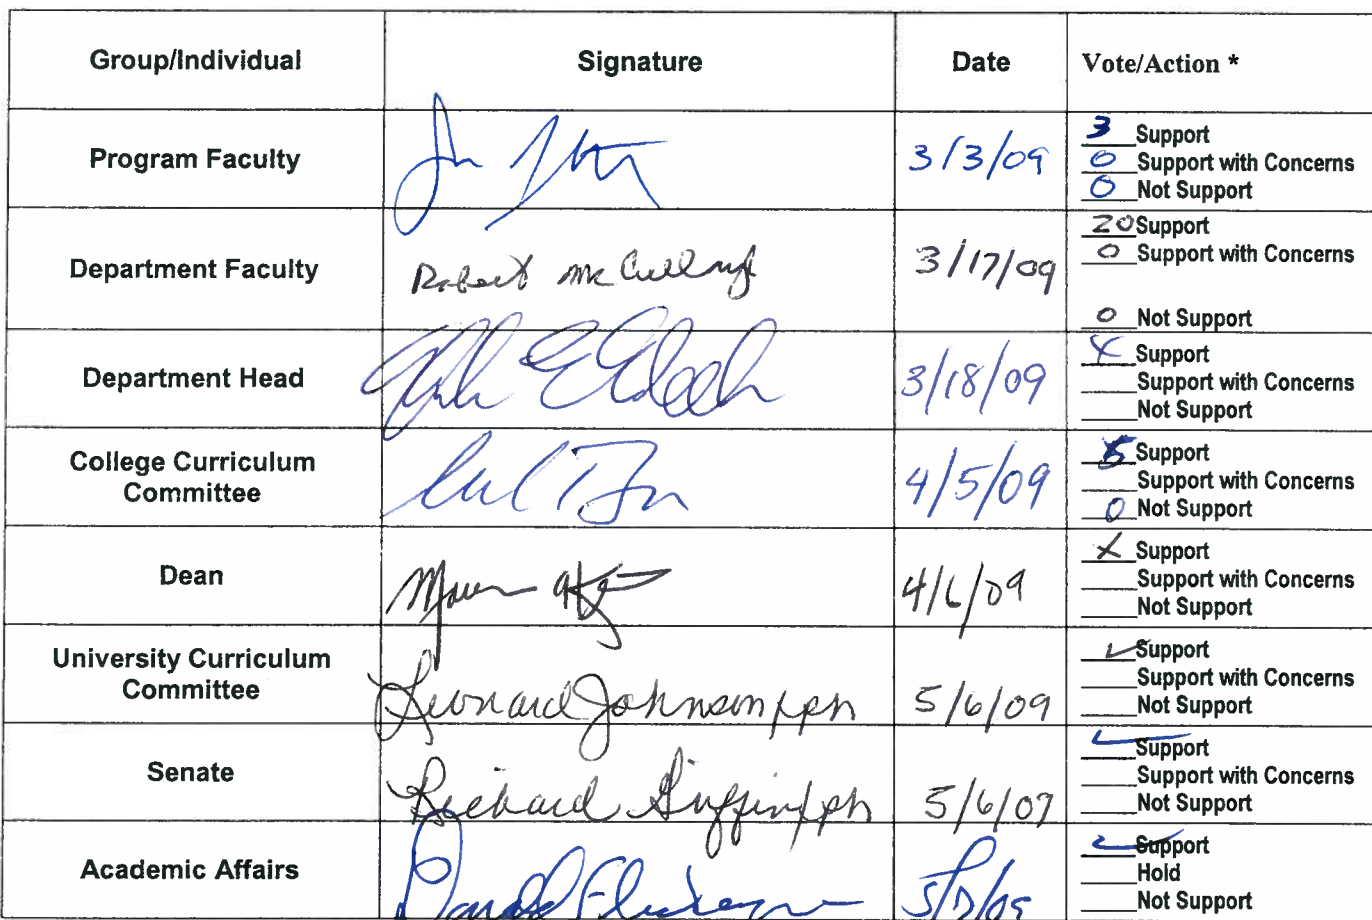 Group/Individual Signature Date Vote/Action *
Program Faculty 3/3/09
3 Support
0 Support with Concerns
0 Not Support
Department Faculty Robert McCullough 3/17/09
20 Support
0 Support with Concerns
0 Not Support
Department Head 3/18/09
X Support
Support with Concerns
Not Support
College Curriculum
Committee
4/5/09
5 Support
Support with Concerns
0 Not Support
Dean 4/6/09
X Support
Support with Concerns
Not Support
University Curriculum
Committee
Leonard Johnson/ph 5/6/09
✓ Support
Support with Concerns
Not Support
Senate Richard Griffin/ph 5/6/09
✓ Support
Support with Concerns
Not Support
Academic Affairs
✓ Support
Hold
Not Support